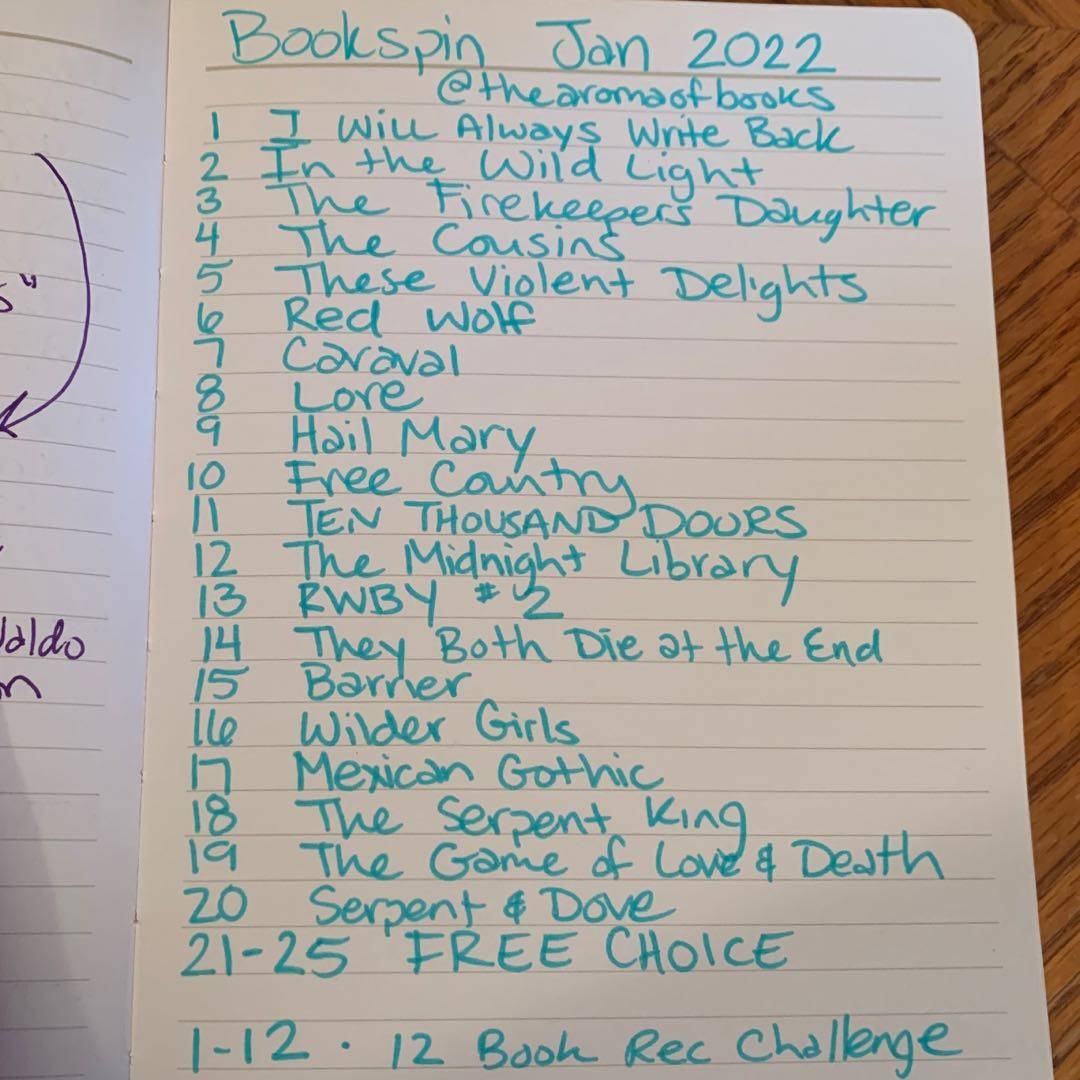 Bookspin Jan 2022
@thearomaofbooks
1 I Will Always Write Back
2 In the Wild Light
3 The Firekeepers Daughter
4 The Cousins
5 These Violent Delights
6 Red Wolf
7 Caraval
8 Lore
9 Hail Mary
10 Free Country
11 TEN THOUSAND DOORS
12 The Midnight Library
13 RWBY #2
14 They Both Die at the End
15 Barrier
16 Wilder Girls
17 Mexican Gothic
18 The Serpent King
19 The Game of Love & Death
20 Serpent & Dove
21-25 FREE CHOICE
1-12 · 12 Book Rec Challenge